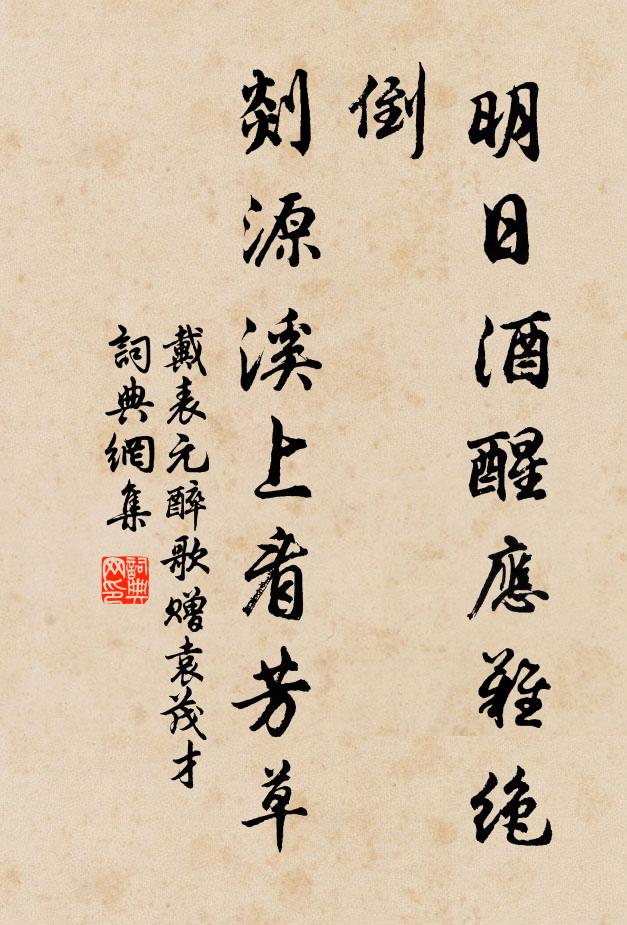 明日酒醒應難絕
倒
剡源溪上看芳草
戴表元醉歌贈袁茂才
詞典網集
詞典網印